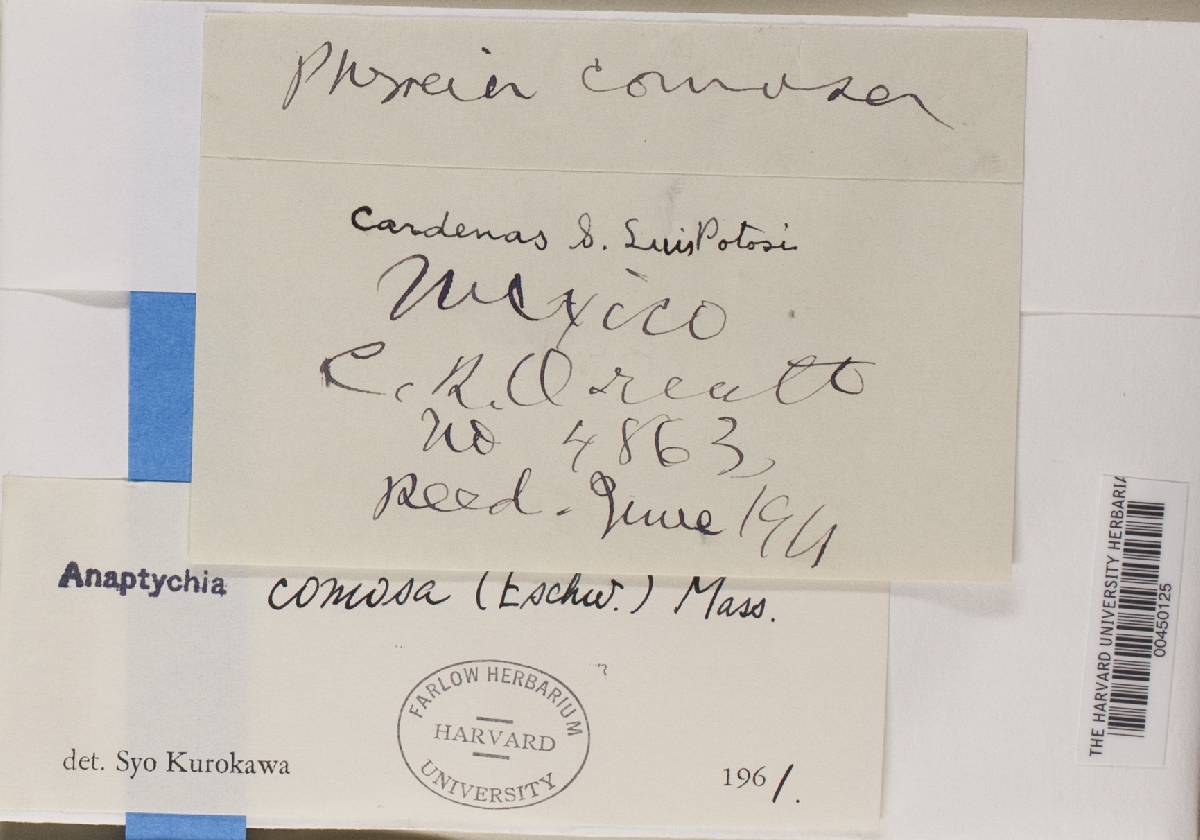 Physcia comosa
Cardenas S. Luis Potosi
Mexico
C. R. Orcutt
No 4863,
Recd. June 1911
Anaptychia comosa (Eschw.) Mass.
FARLOW HERBARIUM
HARVARD
UNIVERSITY
det. Syo Kurokawa
1961.
THE HARVARD UNIVERSITY HERBARIA
00450125